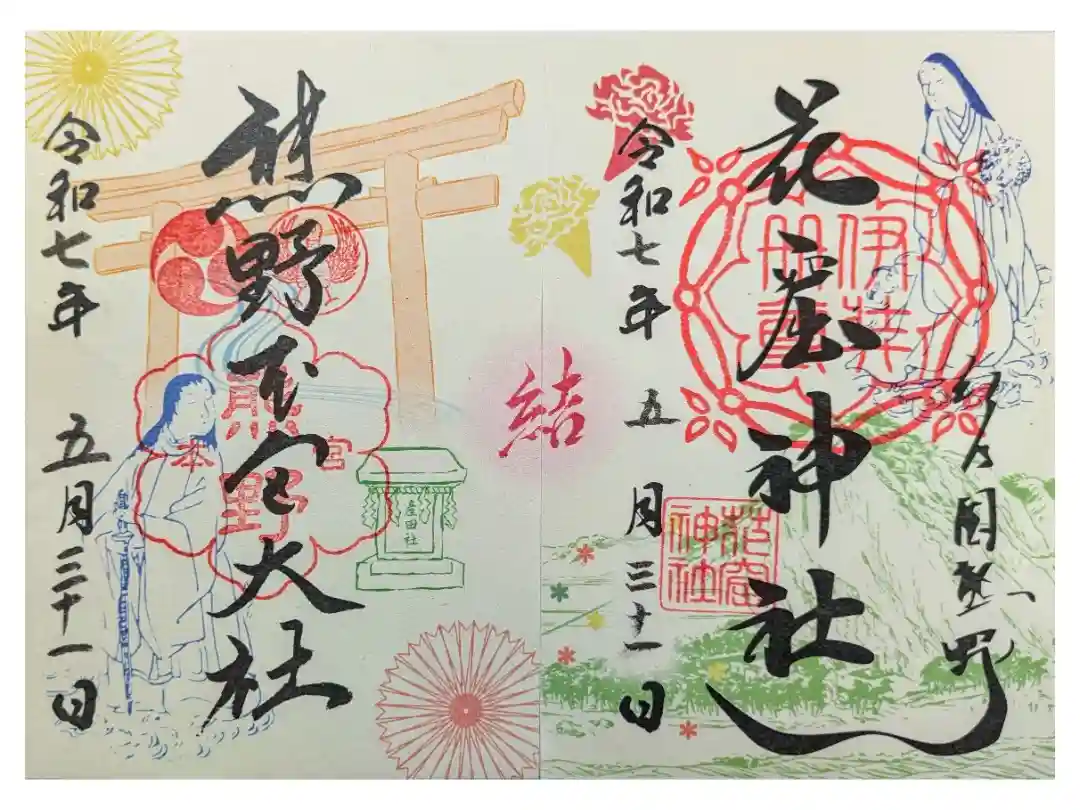 紀乃国熊野
花窟神社
伊弉冊尊
花窟神社
令和七年 五月三十一日
結
産田社
熊野本宮大社
熊野
本宮
令和七年 五月三十一日